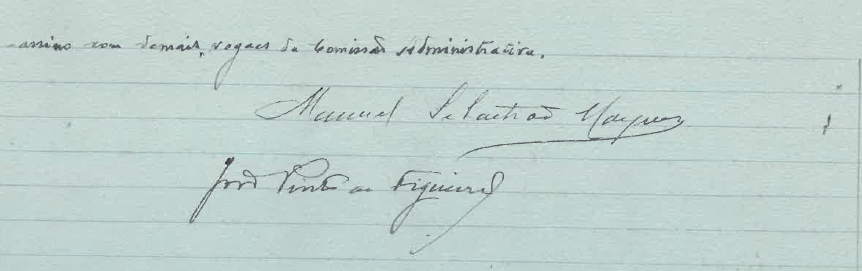 assino com demais, vogaes da Comissão Administrativa.
Manuel Sebastião Marques
José Pinto de Figueired